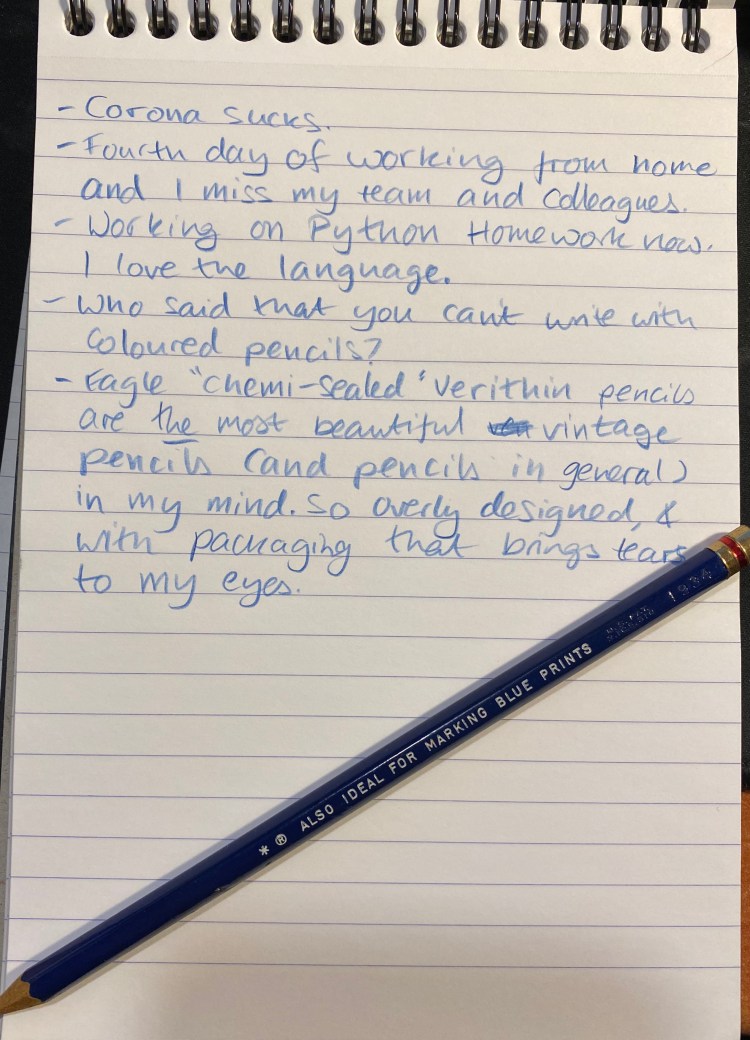 - Corona sucks.
- Fourth day of working from home
and I miss my team and colleagues.
- Working on Python Homework now.
I love the language.
- Who said that you can't write with
coloured pencils?
- Eagle "chemi-sealed" Verithin pencils
are the most beautiful vintage
pencils (and pencils in general)
in my mind. So overly designed, &
with packaging that brings tears
to my eyes.
* ® ALSO IDEAL FOR MARKING BLUE PRINTS